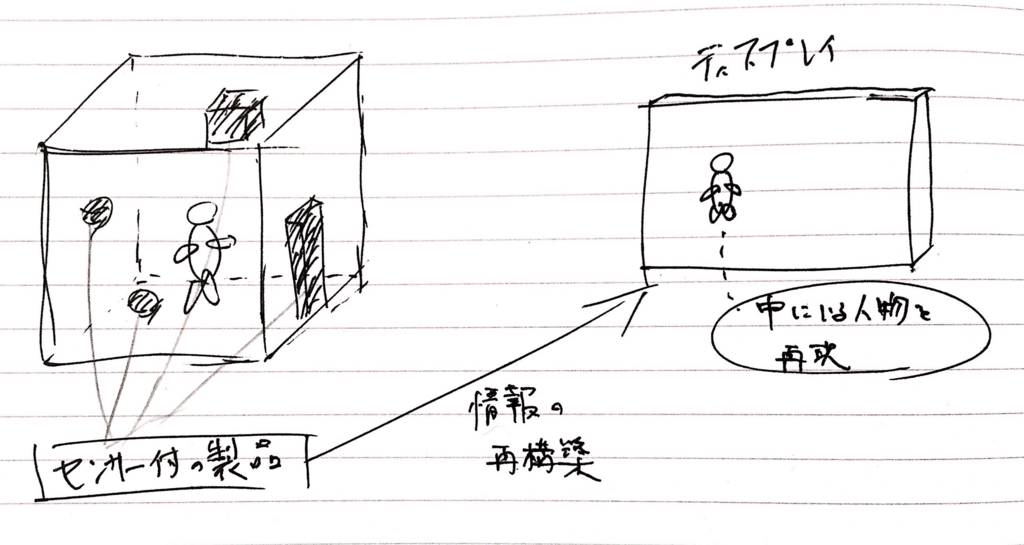 ディスプレイ
中にいる人物を
再現
情報の
再構築
センサー付の製品